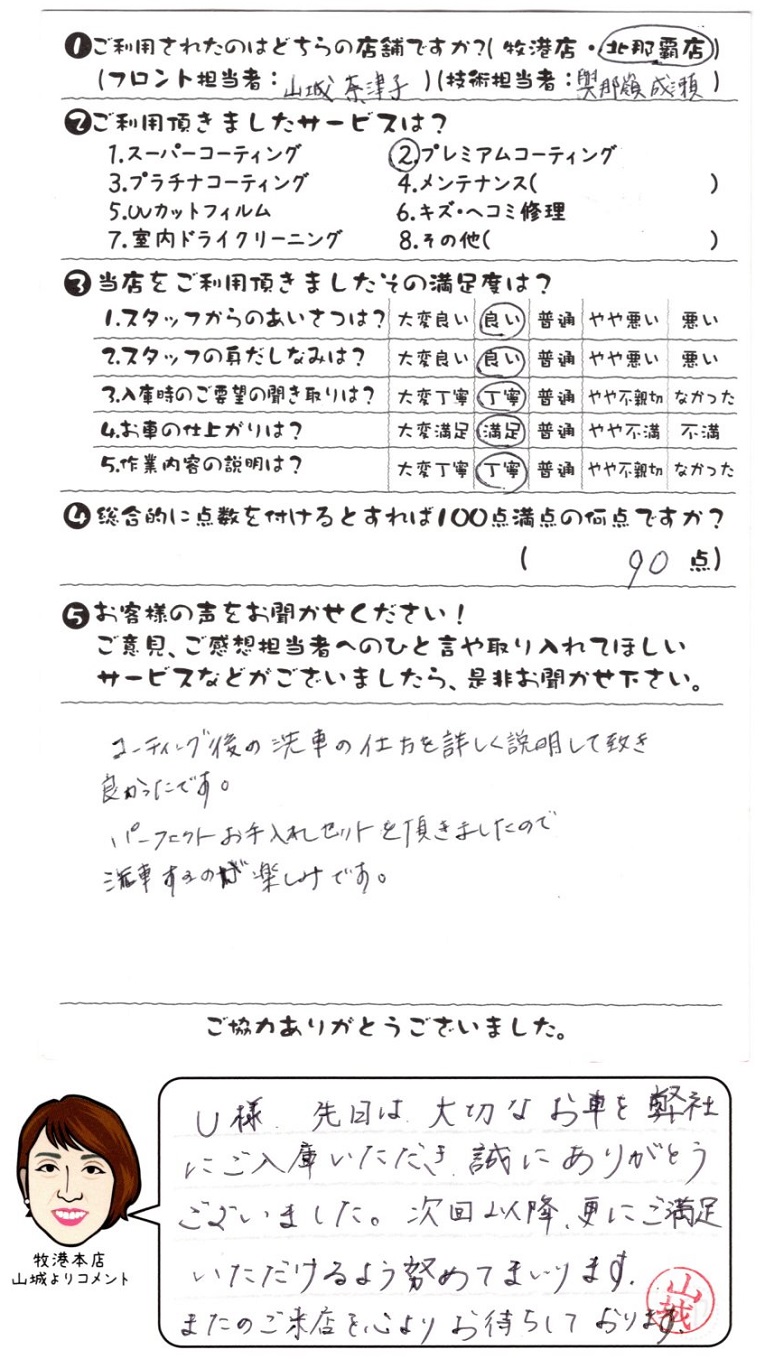 ❶ご利用されたのはどちらの店舗ですか?(牧港店・北那覇店)
(フロント担当者:山城 奈津子)(技術担当者:與那嶺 成瀬)
❷ご利用頂きましたサービスは?
1.スーパーコーティング 2.プレミアムコーティング
3.プラチナコーティング 4.メンテナンス( )
5.UVカットフィルム 6.キズ・ヘコミ修理
7.室内ドライクリーニング 8.その他( )
❸当店をご利用頂きましたその満足度は?
1.スタッフからのあいさつは? 大変良い 良い 普通 やや悪い 悪い
2.スタッフの身だしなみは? 大変良い 良い 普通 やや悪い 悪い
3.入庫時のご要望の聞き取りは? 大変丁寧 丁寧 普通 やや不親切 なかった
4.お車の仕上がりは? 大変満足 満足 普通 やや不満 不満
5.作業内容の説明は? 大変丁寧 丁寧 普通 やや不親切 なかった
❹総合的に点数を付けるとすれば100点満点の何点ですか?
( 90 点)
❺お客様の声をお聞かせください!
ご意見、ご感想担当者へのひと言や取り入れてほしい
サービスなどがございましたら、是非お聞かせ下さい。
コーティング後の洗車の仕方を詳しく説明して致き
良かったです。
パーフェクトお手入れセットを頂きましたので
洗車するのが楽しみです。
ご協力ありがとうございました。
U様 先日は 大切なお車を弊社
にご入庫いただき 誠にありがとう
ございました。次回以降、更にご満足
いただけるよう努めてまいります。
またのご来店を心よりお待ちしております。
山城
牧港本店
山城よりコメント